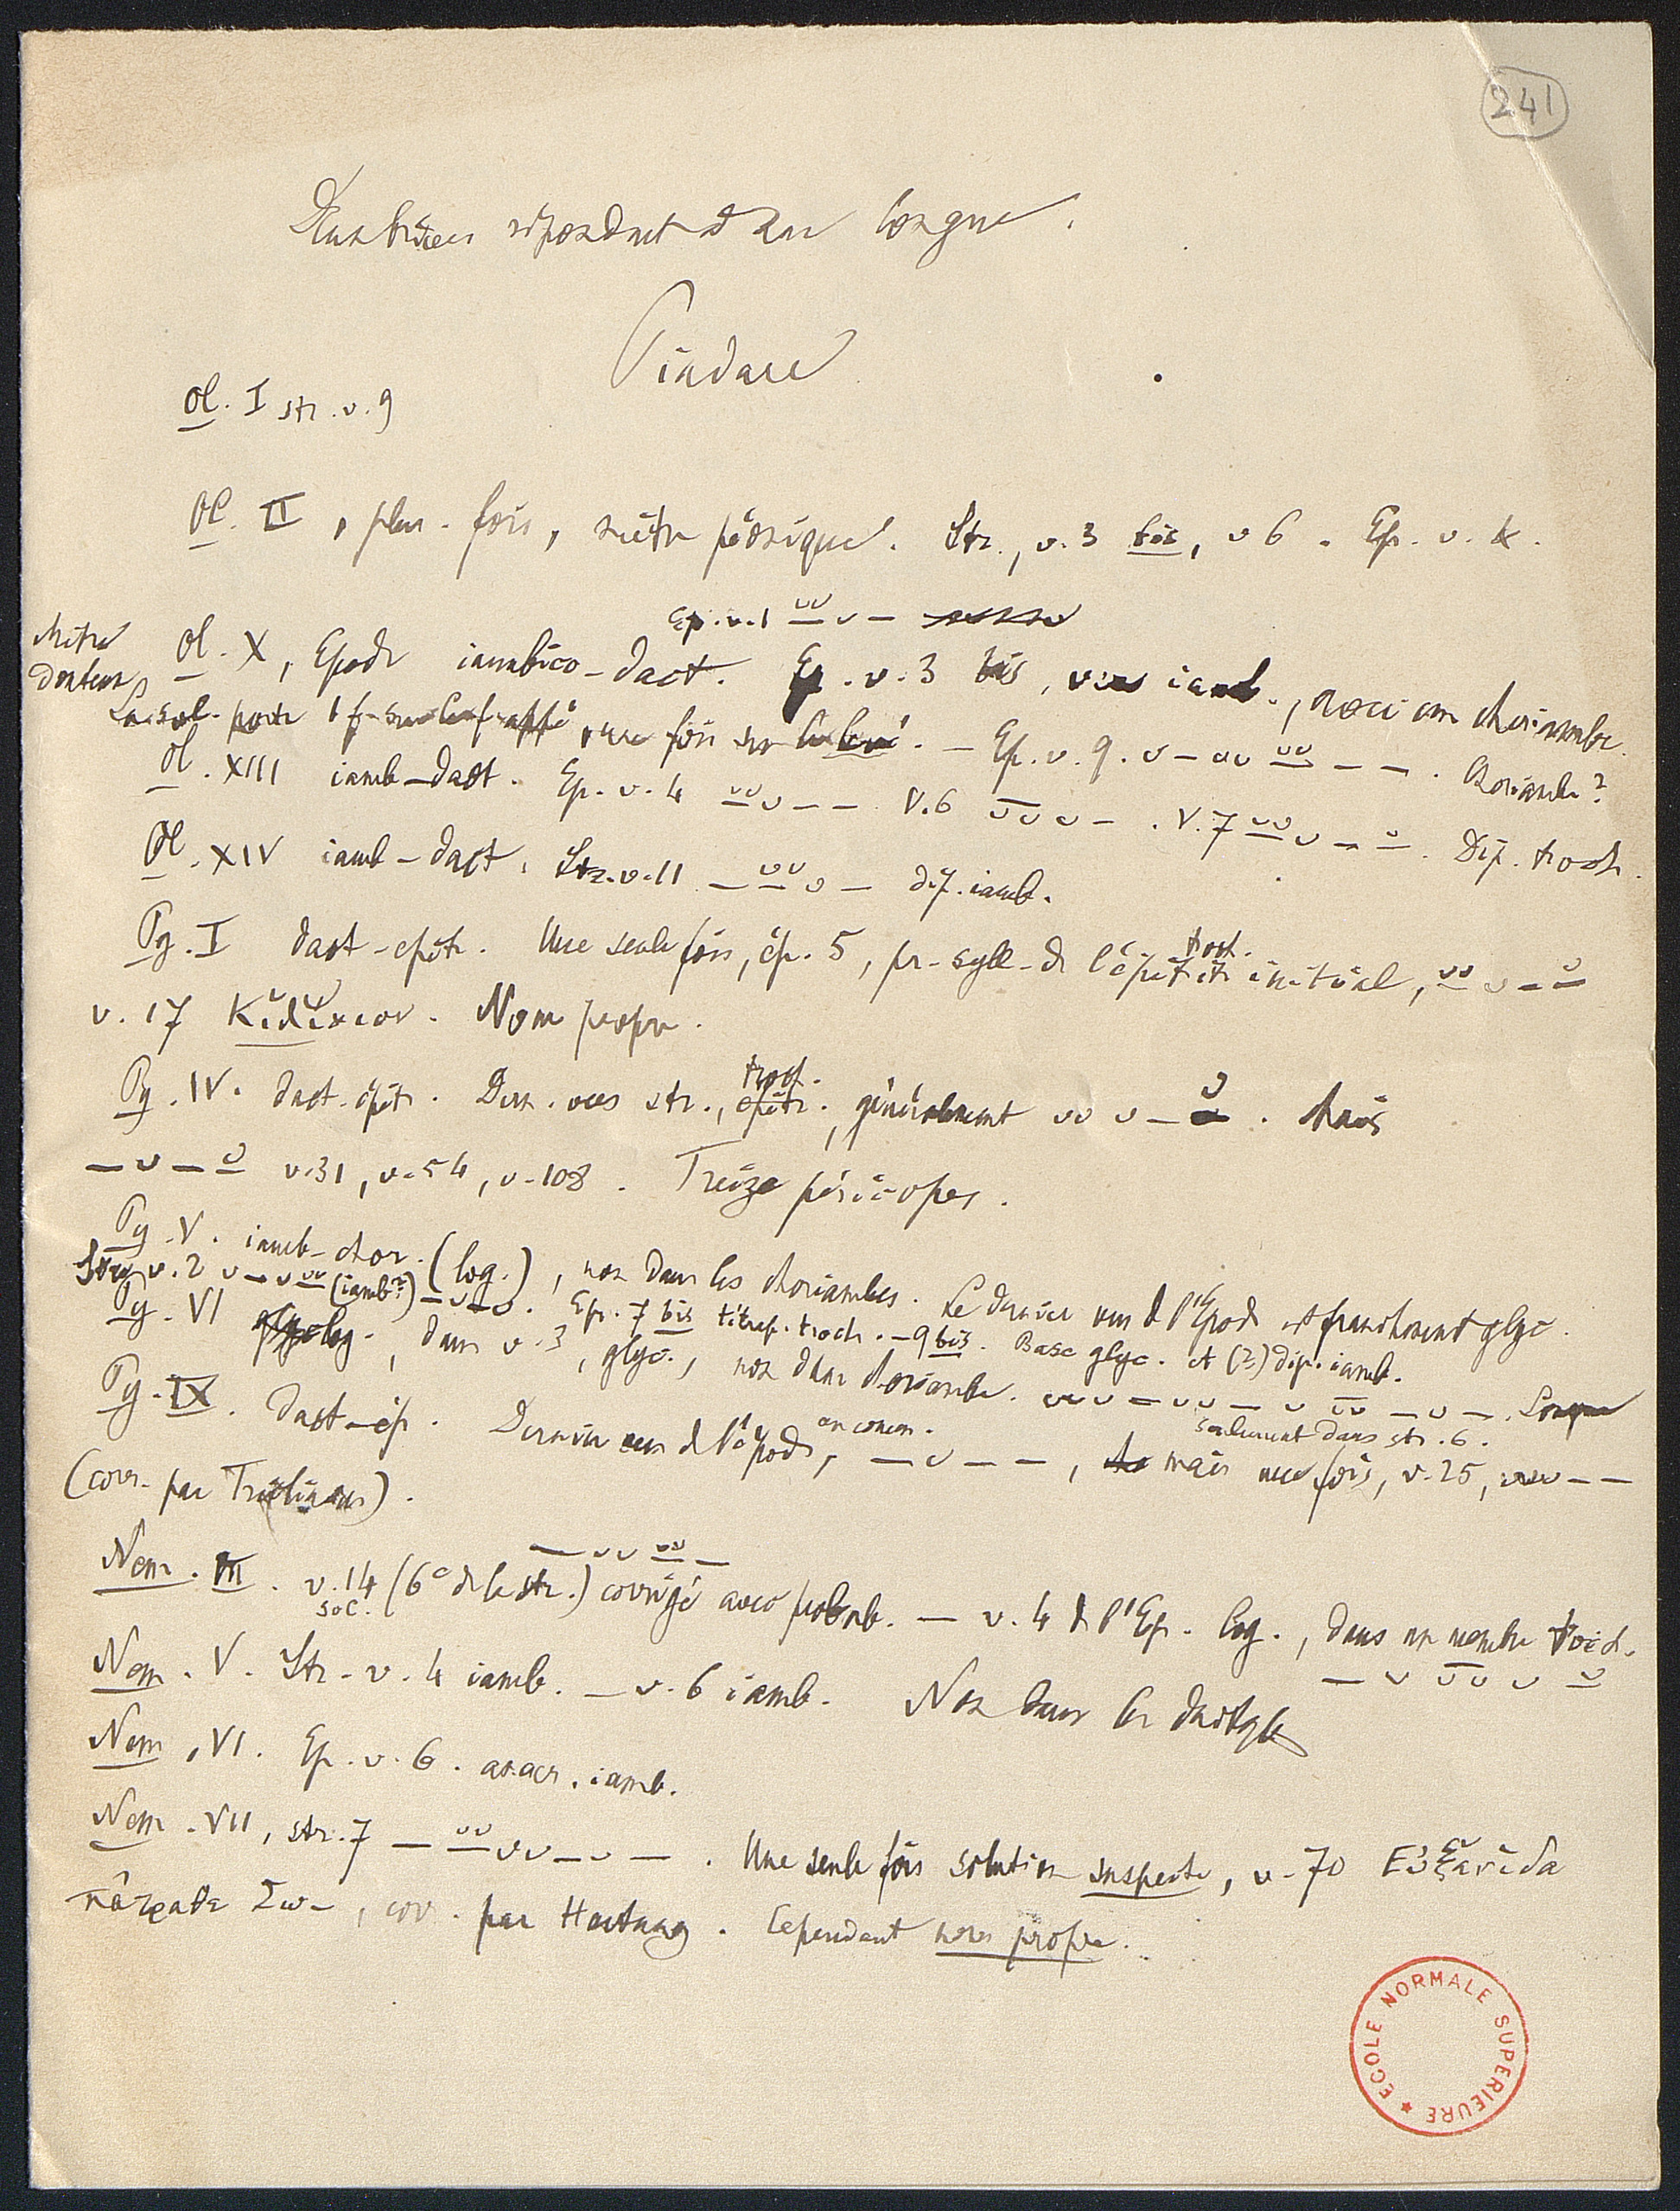 241
Deux brèves répondant à une longue.
Pindare
Ol. I str. v. 9
Ol. II, plus. fois, mètre péonique. Str., v. 3 bis, v 6. Ep. v. 4.
Ep. v. 1 ⏔ ⏑ –
Mètre douteux
Ol. X, Epode iambico-dact. Ep. v. 3 bis, vers iamb., avec un choriambe.
La sol. porte 1 f. sur le frappé, une fois sur le levé. — Ep. v. 9. ⏑ – ⏑⏑ ⏔ – – . Choriambe?
Ol. XIII iamb-dact. Ep. v. 4 ⏔ ⏑ – – V. 6 ⏔ ⏑ – . V. 7 ⏔ ⏑ – ⏓ . Dip. troch.
Ol. XIV iamb-dact. Str. v. 11 – ⏔ ⏑ – dip. iamb.
Py. I dact-épitr. Une seule fois, ép. 5, pr. syll. de l'épitrite troch. initial, ⏔ ⏑ – ⏓
v. 17 Κιλίκιον. Nom propre.
Py. IV. dact-épitr. Dern. vers str., épitr. troch., généralement ⏑⏑ ⏑ – ⏓ . Mais
– ⏑ – ⏓ v. 31, v. 54, v. 108. Treize péricopes.
Py. V. iamb-chor. (log.), non dans les choriambes. Le dernier vers de l'Epode est franchement glyc.
Str. v. 2 ⏑ – ⏑ ⏔ (iamb?) – ⏑ – ⏑ . Ep. 7 bis tétrap. troch. — 9 bis. Base glyc. et (?) dip. iamb.
Py. VI log., dans v. 3, glyc., non dans choriambe. – ⏑⏑ – ⏑ ⏔ – ⏑ – .
seulement dans str. 6.
Py. IX. dact-ép. Dernier vers de l'épode, – ⏑ – – , mais une fois, v. 25, ⏑⏑⏑ – –
(corr. par Triclinius).
– ⏑⏑ ⏔ –
Nem. III. v. 14 (6e de la str.) corrigé avec probab. — v. 4 de l'Ep. log., dans un membre troch.
– ⏑ ⏔ ⏑ ⏓
Nem. V. Str. v. 4 iamb. — v. 6 iamb. Non dans les dactyles
Nem. VI. Ep. v. 6. anacr. iamb.
Nem. VII, str. 7 – ⏔ ⏑⏑ – ⏑ – . Une seule fois solution suspecte, v. 70 Εὐξένιδα
πάτραθε Σω-, cor. par Hartung. Cependant nom propre.
ECOLE NORMALE SUPERIEURE